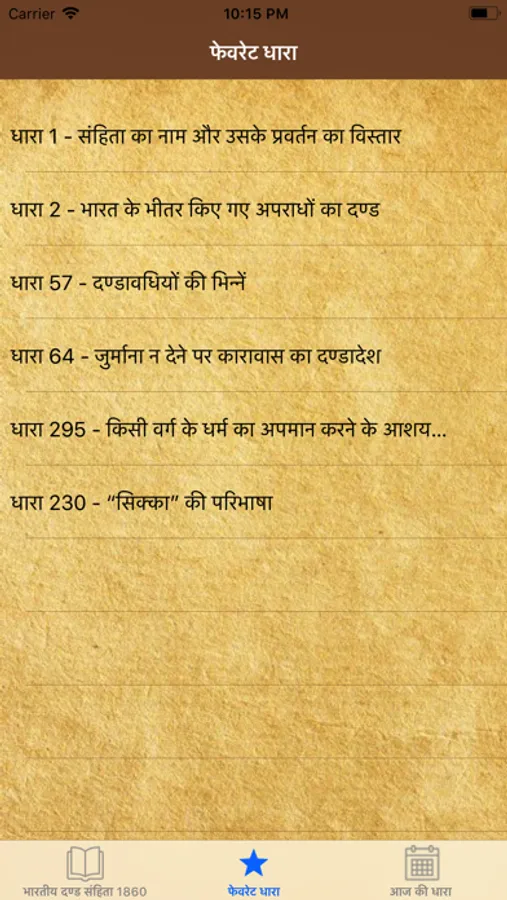 Carrier 10:15 PM
फेवरेट धारा
धारा 1 - संहिता का नाम और उसके प्रवर्तन का विस्तार
धारा 2 - भारत के भीतर किए गए अपराधों का दण्ड
धारा 57 - दण्डावधियों की भिन्नें
धारा 64 - जुर्माना न देने पर कारावास का दण्डादेश
धारा 295 - किसी वर्ग के धर्म का अपमान करने के आशय...
धारा 230 - “सिक्का” की परिभाषा
भारतीय दण्ड संहिता 1860 फेवरेट धारा आज की धारा